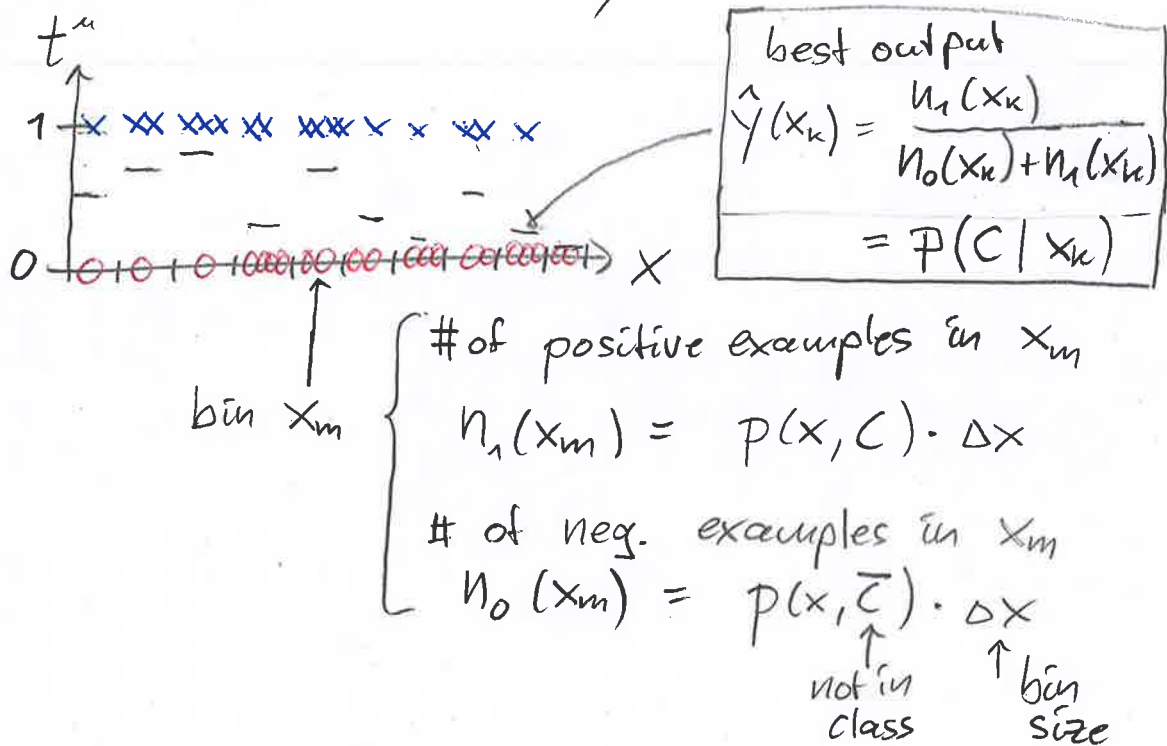 t^μ
1
0
X
best output
ŷ(x_k) = n_1(x_k) / n_0(x_k)+n_1(x_k)
= P(C | x_k)
bin x_m
# of positive examples in x_m
n_1(x_m) = p(x, C) · Δx
# of neg. examples in x_m
n_0(x_m) = p(x, C̅) · Δx
not in class
bin size